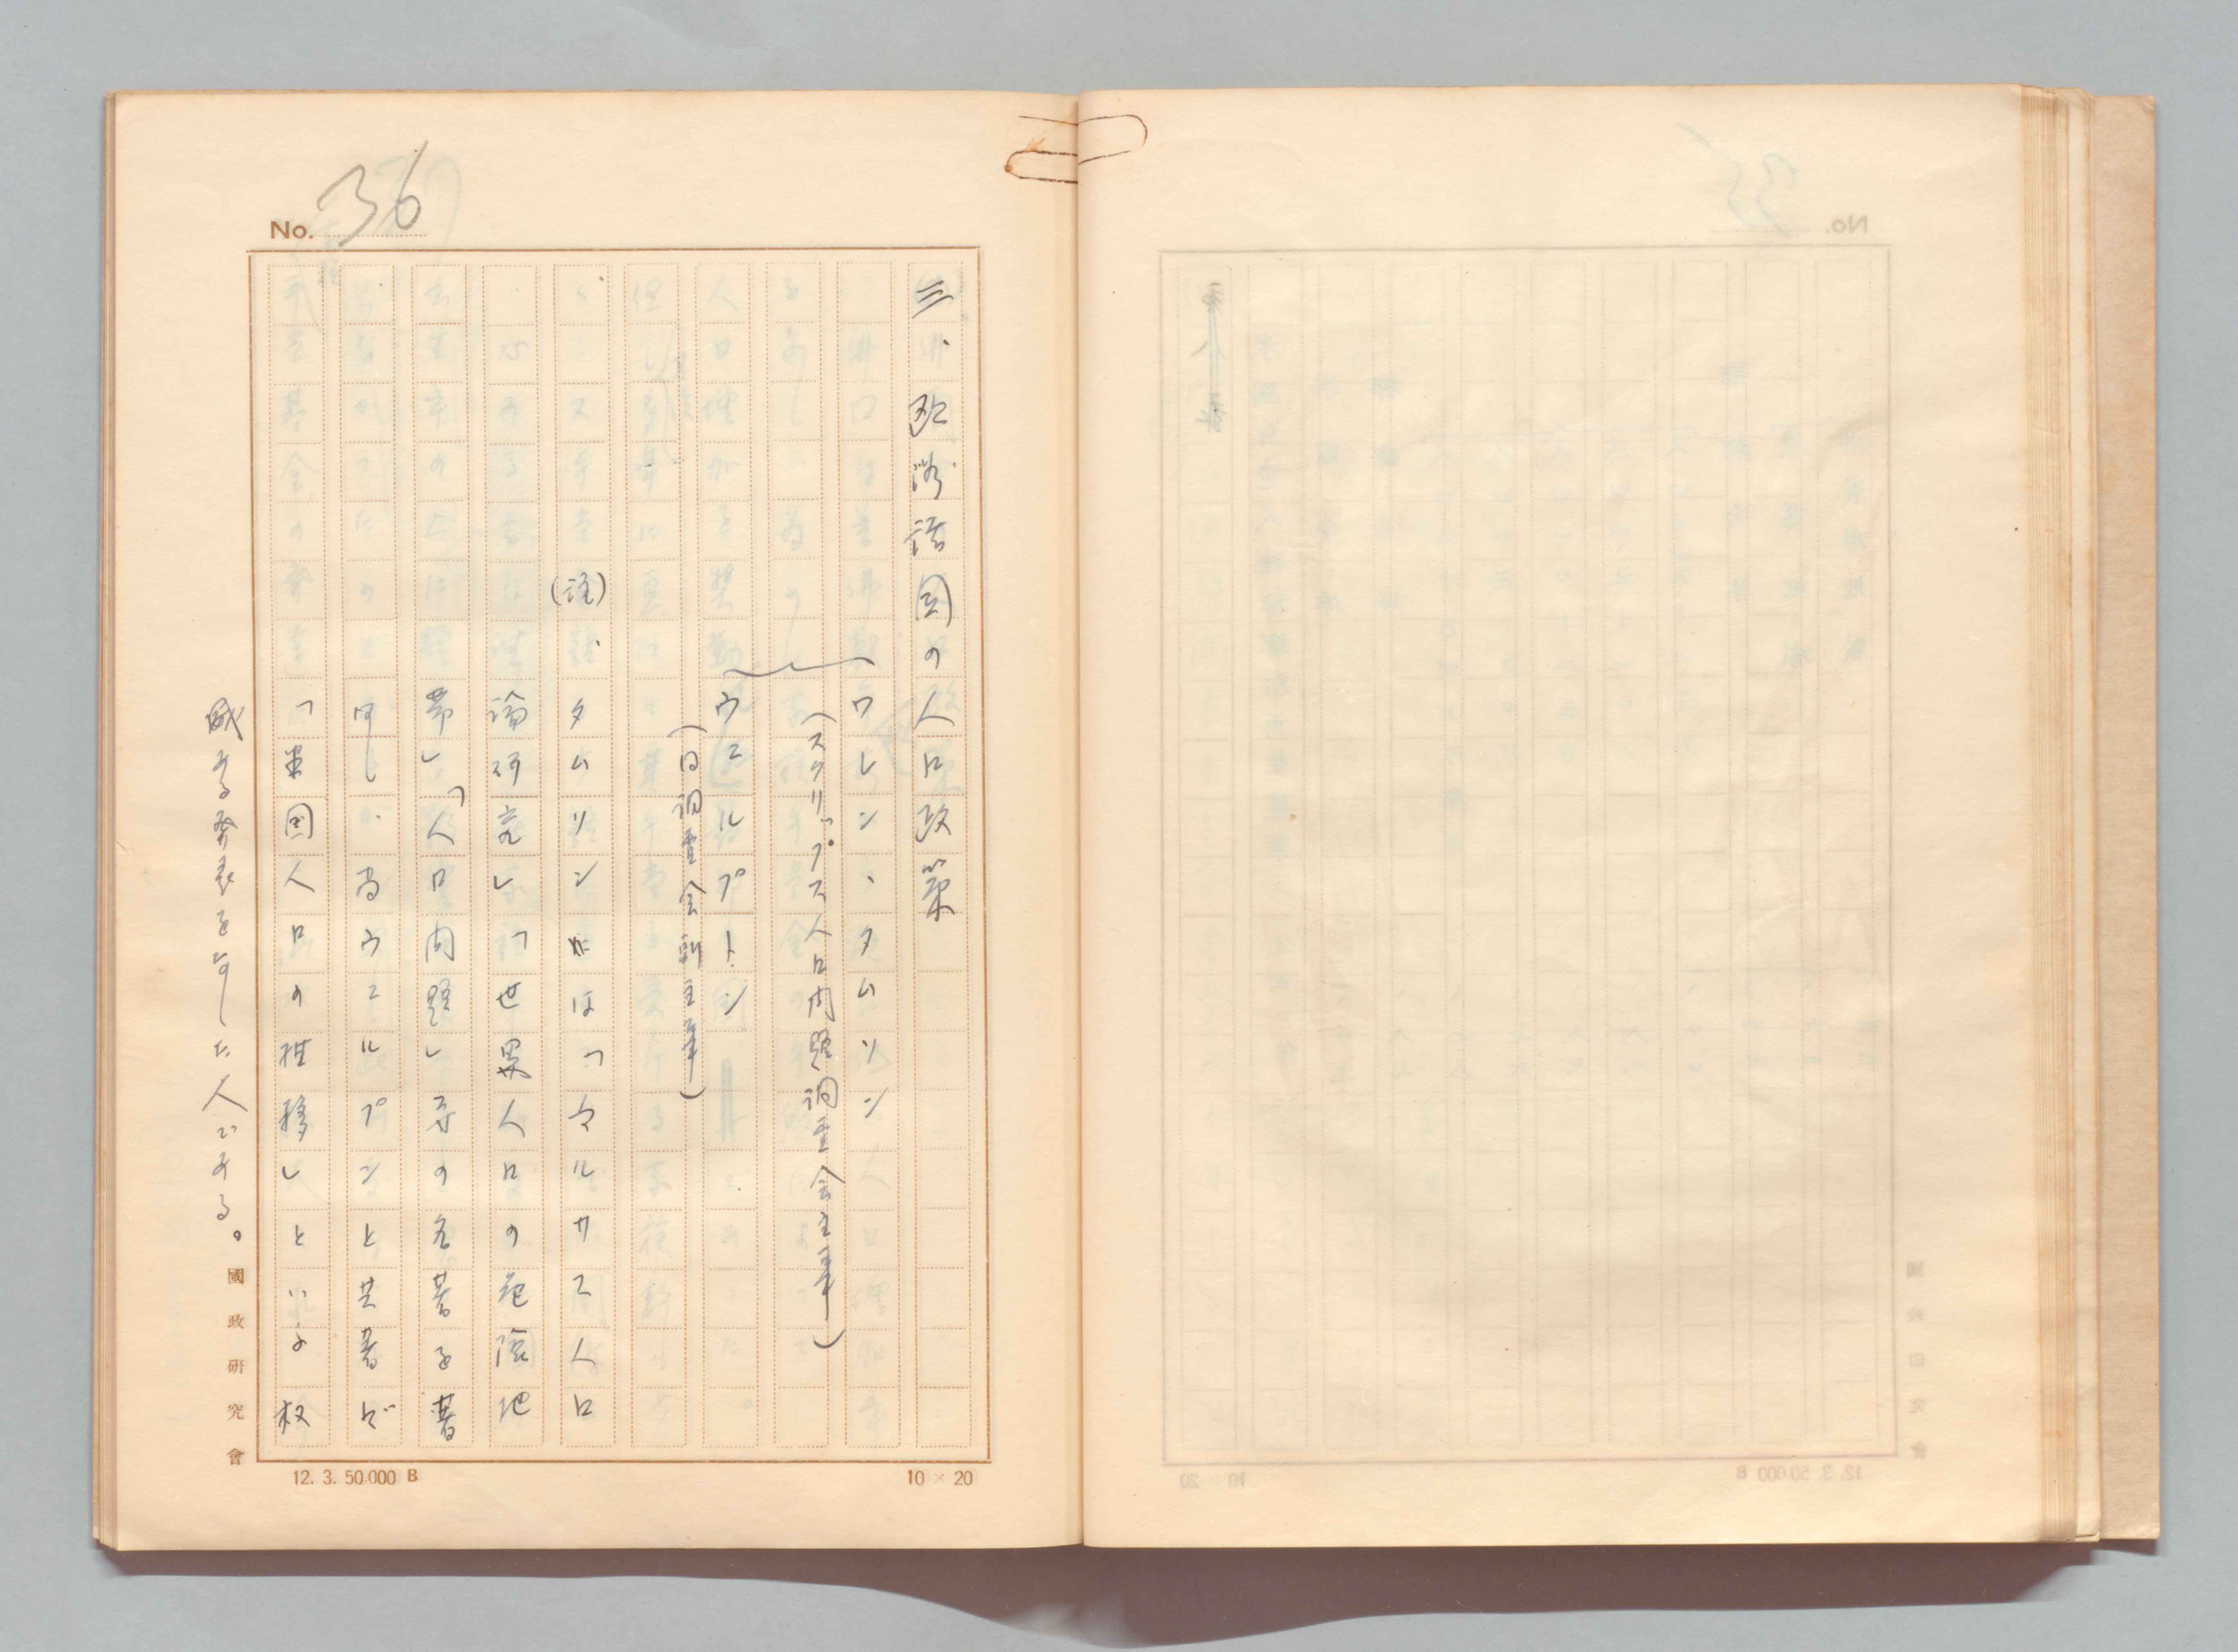 No. 36
三、欧洲諸国の人口政策
ワレン、タムソン
(スクリップス人口問題調査会主事)
ウエルプトン
(同調査会副主事)
(註)、タムソンがは「マルサス人口
論研究」「世界人口の危険地
帯」「人口問題」等の名著を著
はしが、尚ウエルプトンと共著が
「米国人口の推移」といふ权
威ある発表をなした人である。
國政研究會
12. 3. 50.000 B
10 × 20